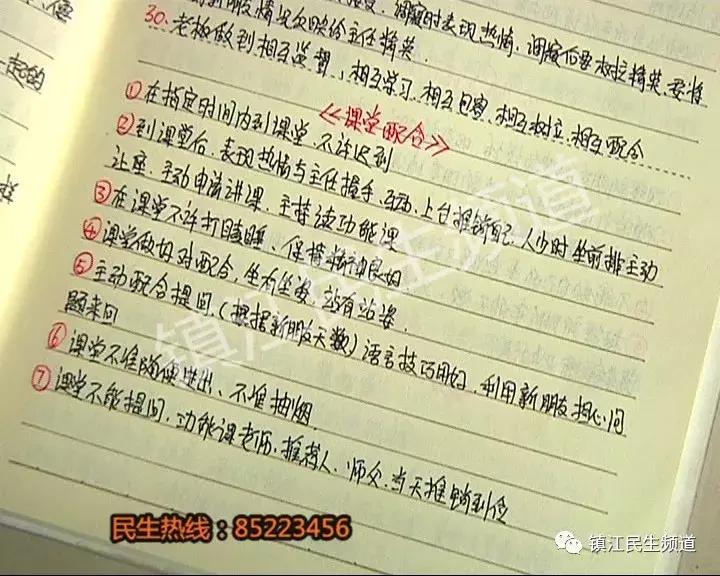 起的
新朋友情况反映给主任精英.
30. 老板做到相互监督、相互学习、相互包容、相互树立、相互配合
《课堂配合》
①在指定时间内到课堂、不许迟到
②到课堂后、表现热情与主任握手、互动、上台推销自己、人少时坐前排主动
让座、主动申请讲课、主持读功能课
③在课堂不许打瞌睡、保持精神良好.
④课堂做好对配合,坐有坐姿、站有站姿.
⑤主动配合提问.(根据新朋友天数)语言技巧用好、利用新朋友担心问
题来回
⑥课堂不准随便进出、不准抽烟.
⑦课堂不能提问、功能课老师、推荐人、师父、当天推销到位
镇江民生频道
民生热线：85223456
镇江民生频道